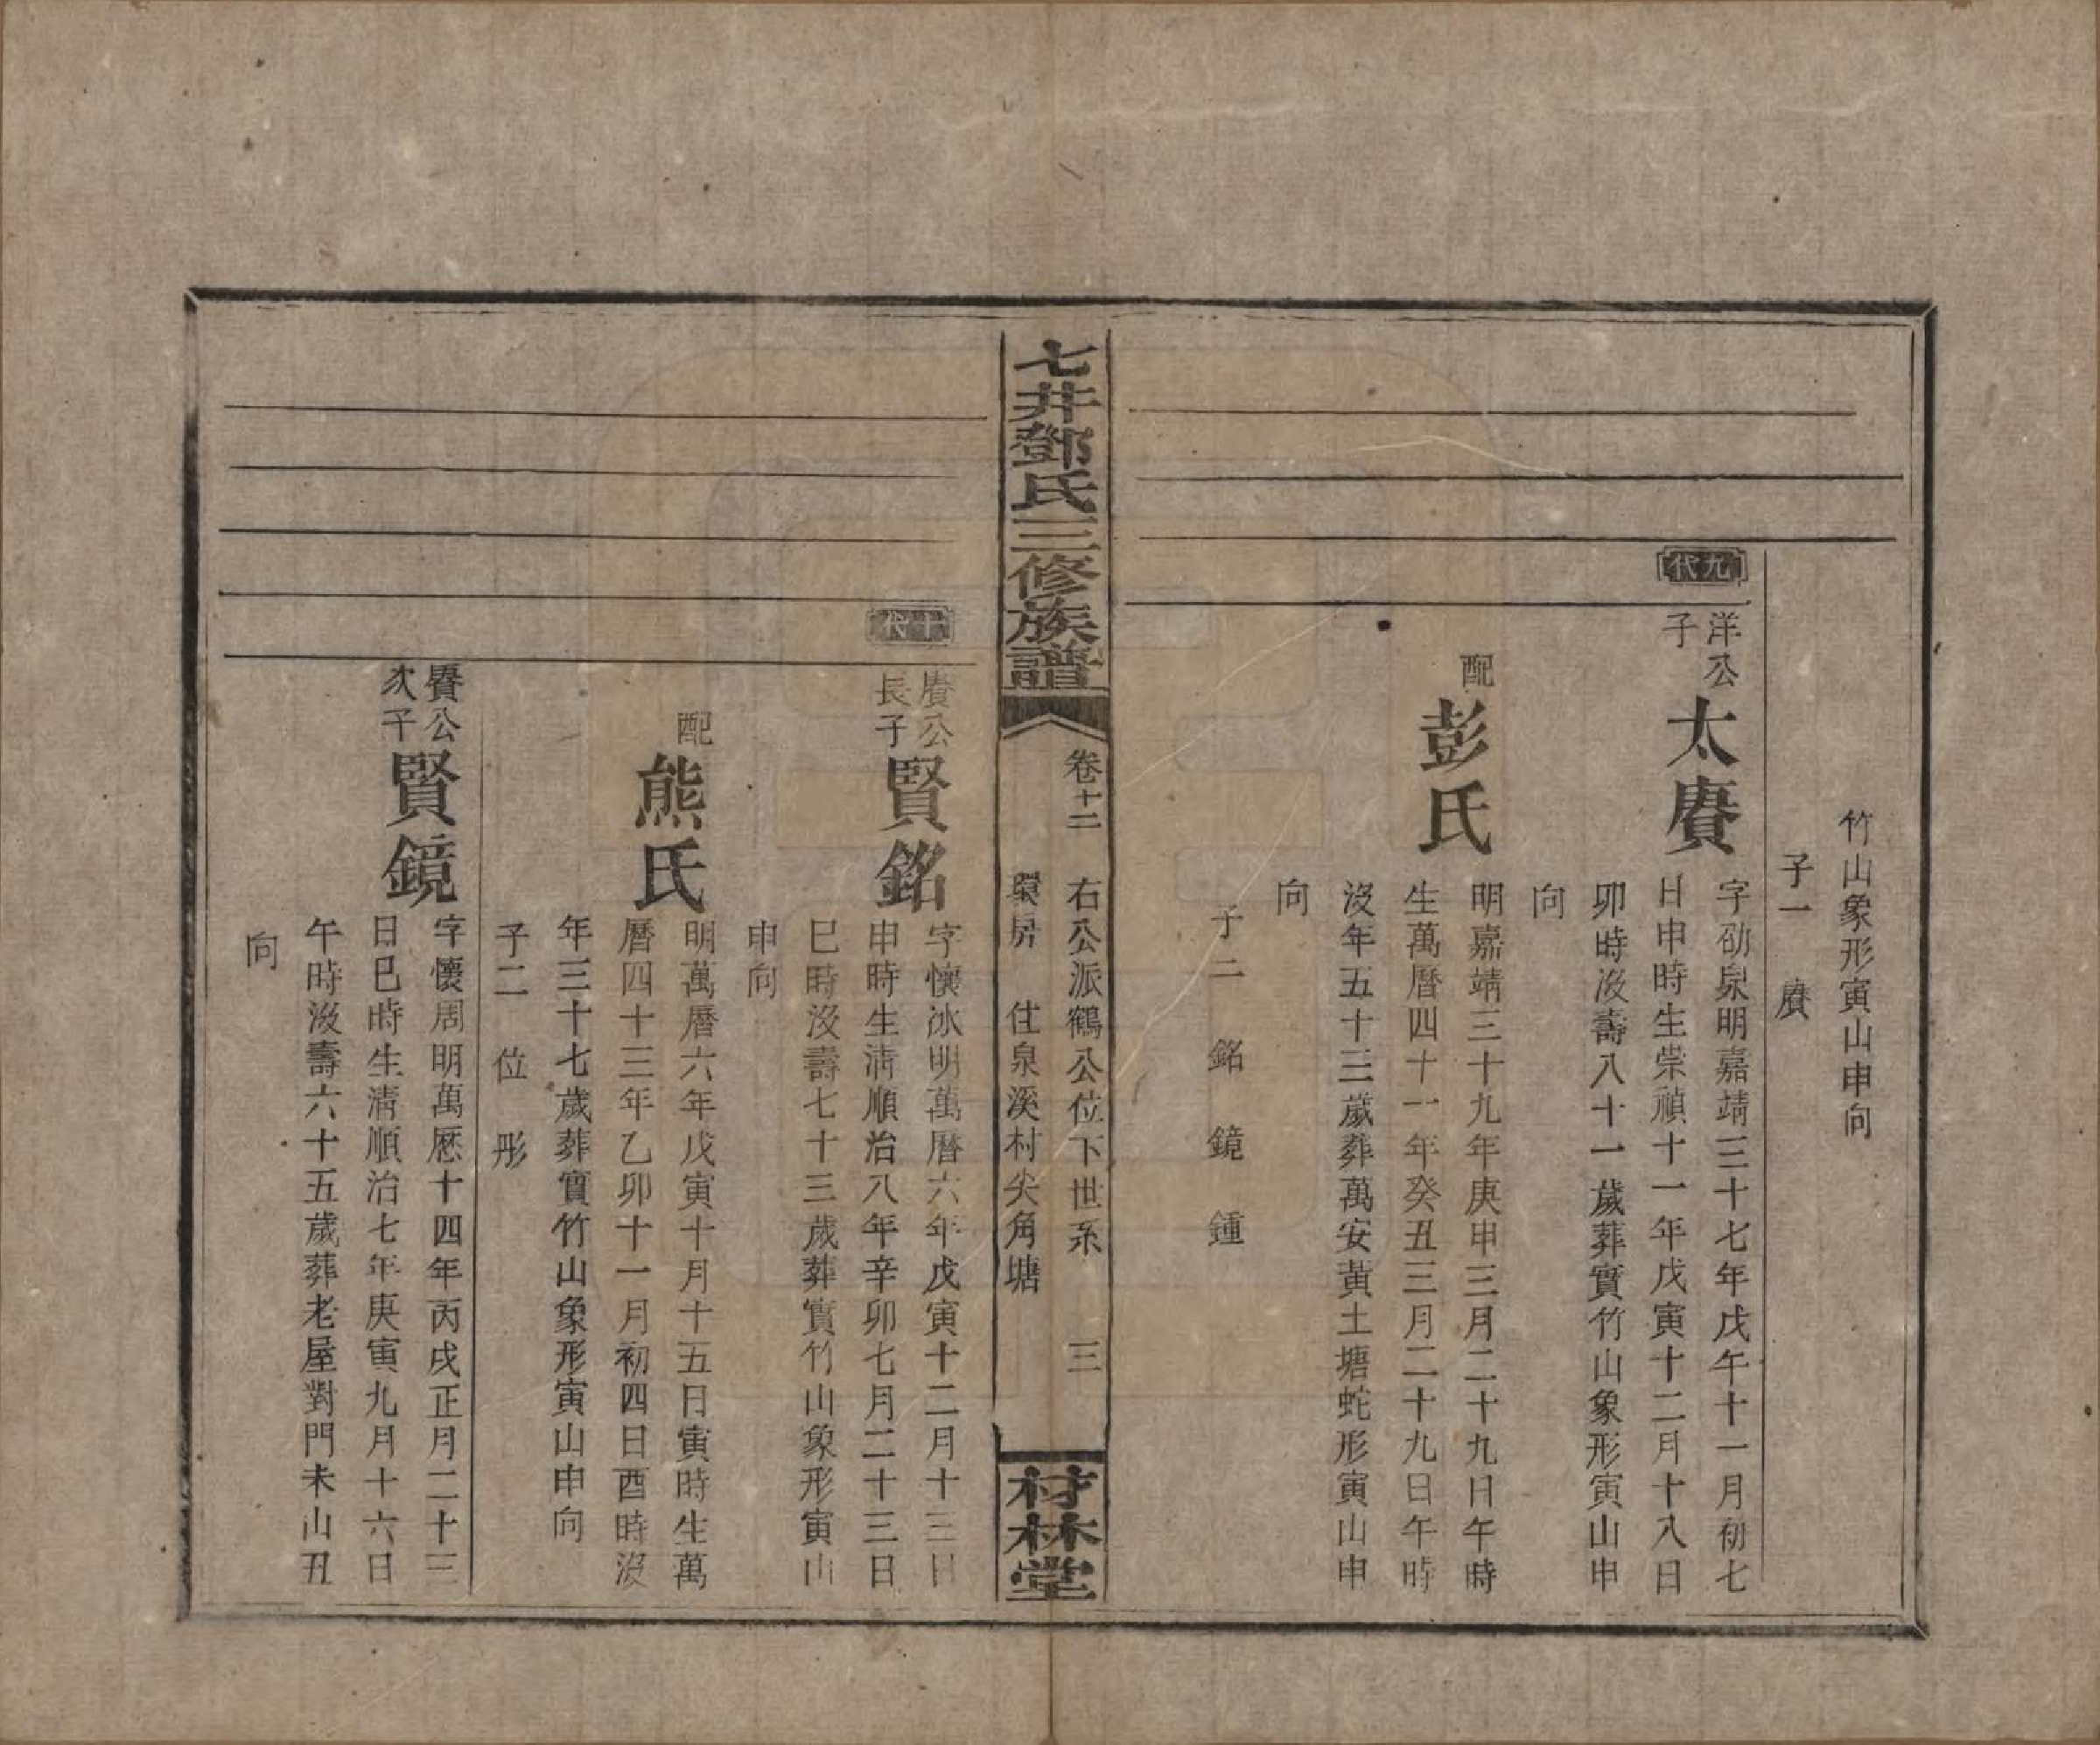 竹山象形寅山申向
子一　賡
九代
洋公
子
太賡
字劭泉明嘉靖三十七年戊午十一月初七
日申時生崇禎十一年戊寅十二月十八日
卯時沒壽八十一歲葬實竹山象形寅山申
向
配
彭氏
明嘉靖三十九年庚申三月二十九日午時
生萬曆四十一年癸丑三月二十九日午時
沒年五十三歲葬萬安黃土塘蛇形寅山申
向
子二　銘　鏡　鍾
七井鄧氏三修族譜
卷十二　右公派鶴公位下世系　三
環房　住泉溪村尖角塘
材林堂
十代
賡公
長子
賢銘
字懷冰明萬曆六年戊寅十二月十三日
申時生淸順治八年辛卯七月二十三日
巳時沒壽七十三歲葬實竹山象形寅山
申向
配
熊氏
明萬曆六年戊寅十月十五日寅時生萬
曆四十三年乙卯十一月初四日酉時沒
年三十七歲葬實竹山象形寅山申向
子二　位　彤
賡公
次子
賢鏡
字懷周明萬歷十四年丙戌正月二十三
日巳時生淸順治七年庚寅九月十六日
午時沒壽六十五歲葬老屋對門未山丑
向